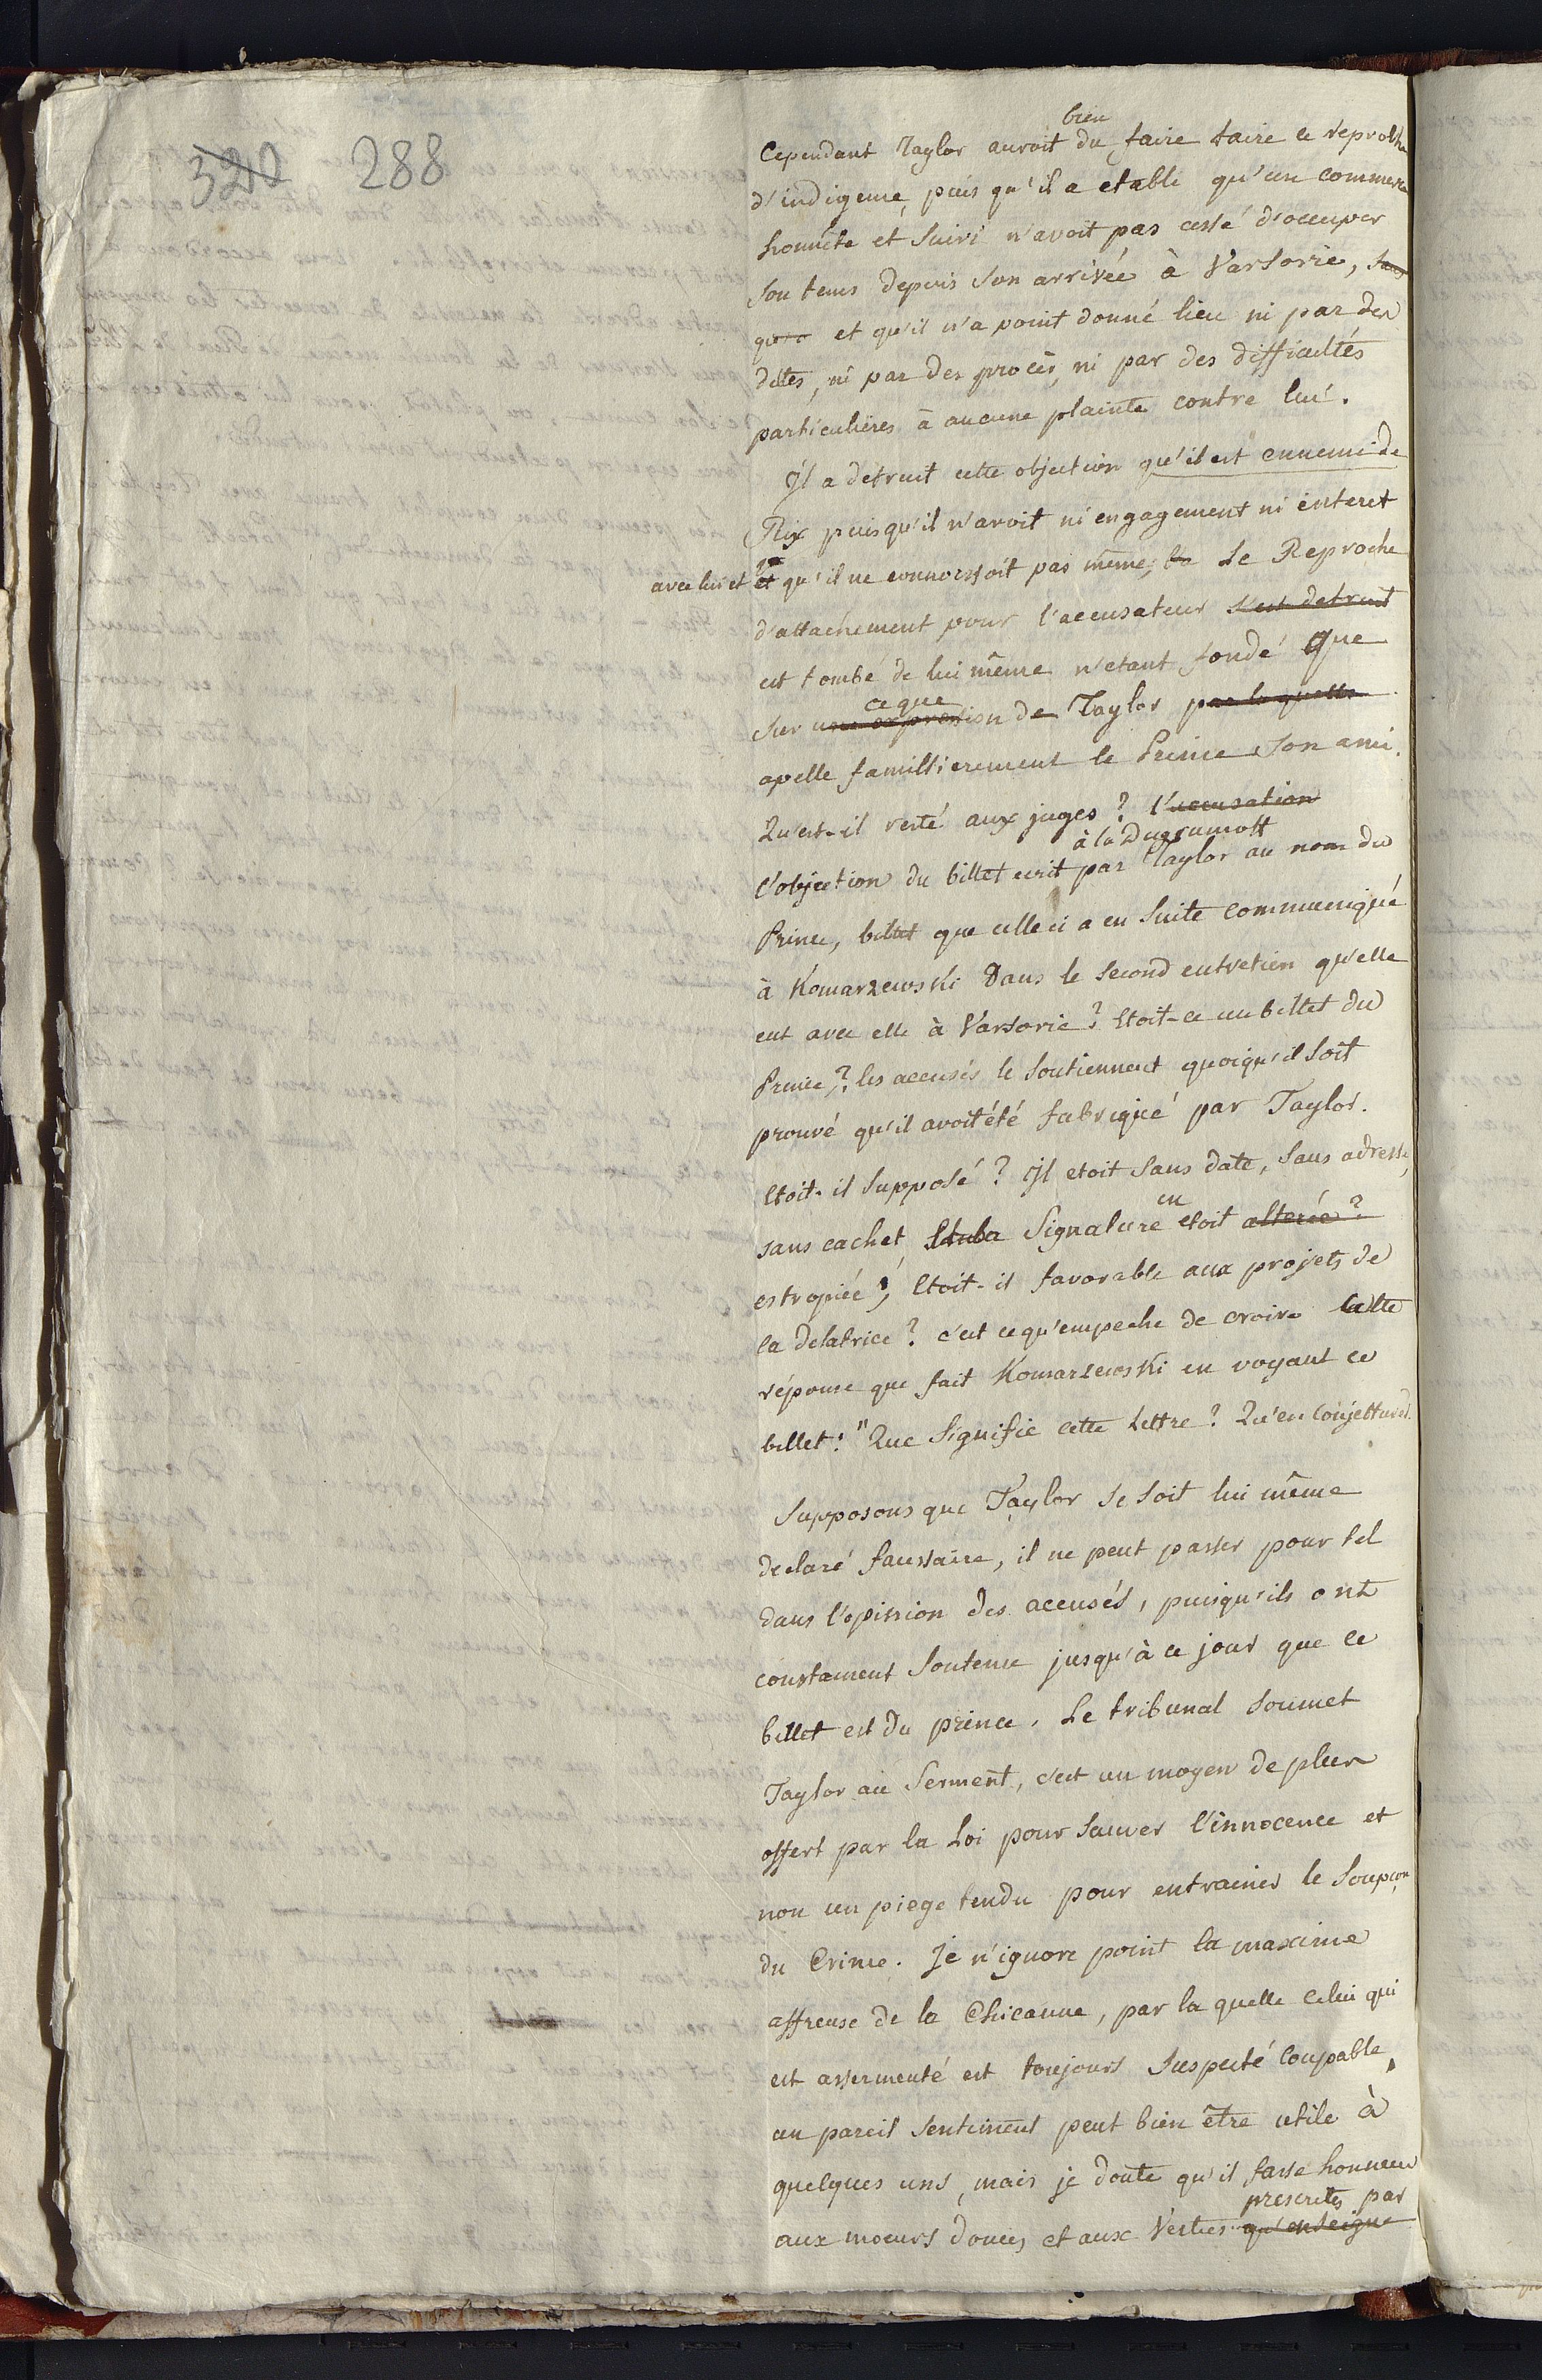 320 288
bien
Cependant Taylor auroit du faire taire ce reproche
d'indigence, puis qu'il a etabli qu'un commerce
honnête et suivi n'avoit pas cessé d'occuper
son tems depuis son arrivée à Varsovie, sans
que et qu'il n'a point donné lieu ni par des
dettes, ni par des procès, ni par des difficultés
particulières à aucune plainte contre lui.
Il a detruit cette objection qu'il est ennemi de
Rix puisqu'il n'avoit ni engagement ni interet
avec lui et et qu'il ne connoissoit pas même, la Le Reproche
d'attachement pour l'accusateur s'est detruit
est tombé de lui même n'etant fondé que
ce que
sur une expression de Taylor par la quelle
apelle famillierement le Prince son ami.
Qu'est-il resté aux juges? l'accusation
à la Dugrumoff
l'objection du billet ecrit par Taylor au nom du
Prince, billet que celle ci a en suite communiqué
à Komarzewski dans le second entretien qu'elle
eut avec elle à Varsovie? Etoit-ce un billet du
Prince? les accusés le soutiennent quoiqu'il soit
prouvé qu'il avoit été fabriqué par Taylor.
Etoit-il supposé? Il etoit sans date, sans adresse,
en
sans cachet, et la Signature etoit alterée?
estropiée; Etoit-il favorable aux projets de
la delatrice? c'est ce qu'empeche de croire cette
réponse que fait Komarzewski en voyant ce
billet: "Que Signifie cette Lettre? Qu'en conjetturés
Supposons que Taylor se soit lui même
declaré faussaire, il ne peut passer pour tel
dans l'opinion des accusés, puisqu'ils ont
constament soutenu jusqu'à ce jour que ce
billet est du prince. Le tribunal soumet
Taylor au Serment, c'est un moyen de plus
offert par la Loi pour sauver l'innocence et
non un piege tendu pour entrainer le soupçon
du Crime. Je n'ignore point la maxime
affreuse de la Chicanne, par la quelle celui qui
est assermenté est toujours suspecté coupable,
un pareil sentiment peut bien être utile à
quelques uns, mais je doute qu'il fasse honneur
prescrites par
aux moeurs douces et aux Vertus qu'enseigne